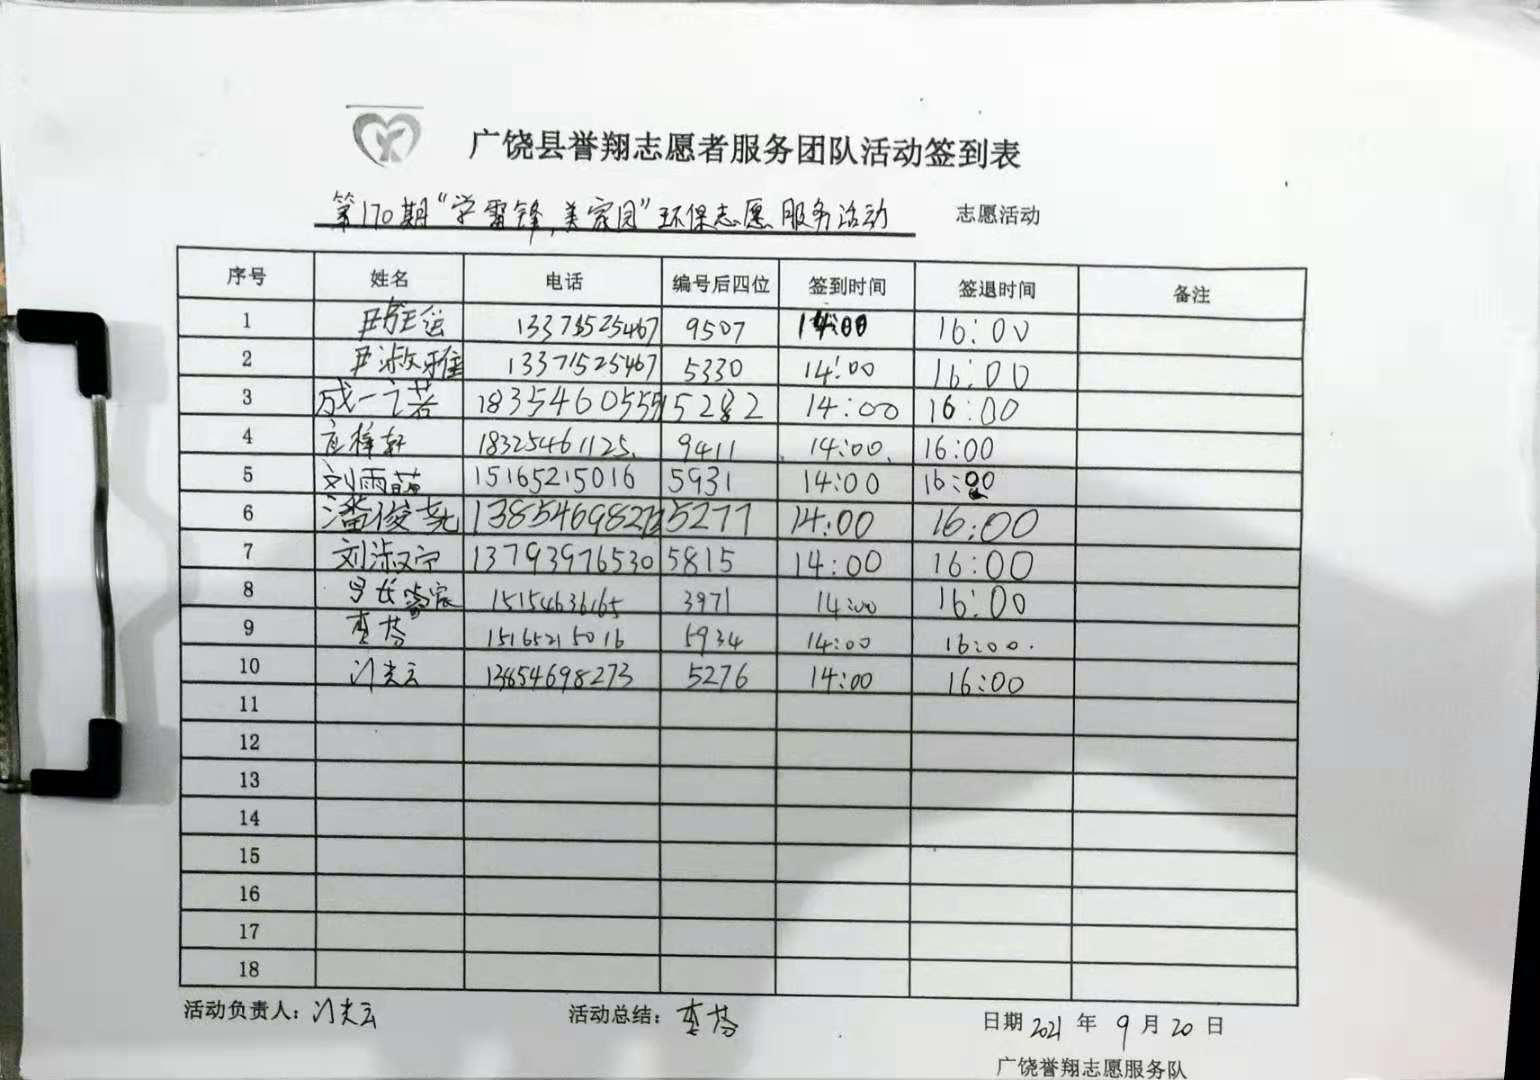 广饶县誉翔志愿者服务团队活动签到表
第170期“学雷锋,美家园”环保志愿服务活动 志愿活动
序号 姓名 电话 编号后四位 签到时间 签退时间 备注
1 9507 14:00 16:00
2 13371525467 5330 14:00 16:00
3 成一诺 18354605555 5282 14:00 16:00
4 18325461125 9411 14:00 16:00
5 刘雨菡 15165215016 5931 14:00 16:00
6 潘俊尧 5277 14:00 16:00
7 刘淑宁 13793976530 5815 14:00 16:00
8 15154636165 3971 14:00 16:00
9 15165215016 5934 14:00 16:00
10 5276 14:00 16:00
11
12
13
14
15
16
17
18
活动负责人: 活动总结: 日期 2021 年 9 月 20 日
广饶誉翔志愿服务队